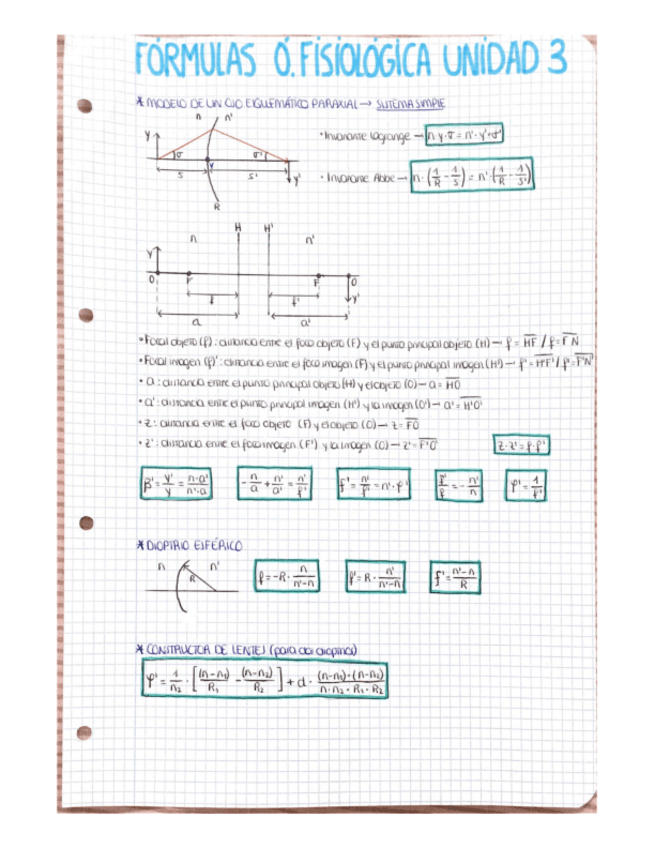 FÓRMULAS Ó.FISIOLÓGICA UNIDAD 3
* MODELO DE UN OJO ESQUEMÁTICO PARAXIAL → SISTEMA SIMPLE
n n'
y σ σ' y'
V
s s'
R
• Invariante Lagrange → n·y·σ = n'·y'·σ'
• Invariante Abbe → n·(1/R - 1/s) = n'·(1/R - 1/s')
H H'
n n'
y
O F F' O
y'
f f'
a a'
• Focal objeto (f): distancia entre el foco objeto (F) y el punto principal objeto (H) → f = HF / f = F'N
• Focal imagen (f)': distancia entre el foco imagen (F') y el punto principal imagen (H') → f' = H'F' / f' = F'N'
• a: distancia entre el punto principal objeto (H) y el objeto (O) → a = HO
• a': distancia entre el punto principal imagen (H') y la imagen (O') → a' = H'O'
• z: distancia entre el foco objeto (F) y el objeto (O) → z = FO
• z': distancia entre el foco imagen (F') y la imagen (O) → z' = F'O'
z·z' = f·f'
β' = y'/y = n·a'/n'·a
-n/a + n'/a' = n'/f'
f'/f = -n'/n
φ' = 1/f'
* DIOPTRIO ESFÉRICO
n n'
R
f = -R · n/n'-n
f' = R · n'/n'-n
f' = n'-n/R
* CONSTRUCTOR DE LENTES (para dos dioptrios)
φ' = 1/n₂ · [(n-n₁)/R₁ - (n-n₂)/R₂] + d · (n-n₁)·(n-n₂)/n·n₂·R₁·R₂